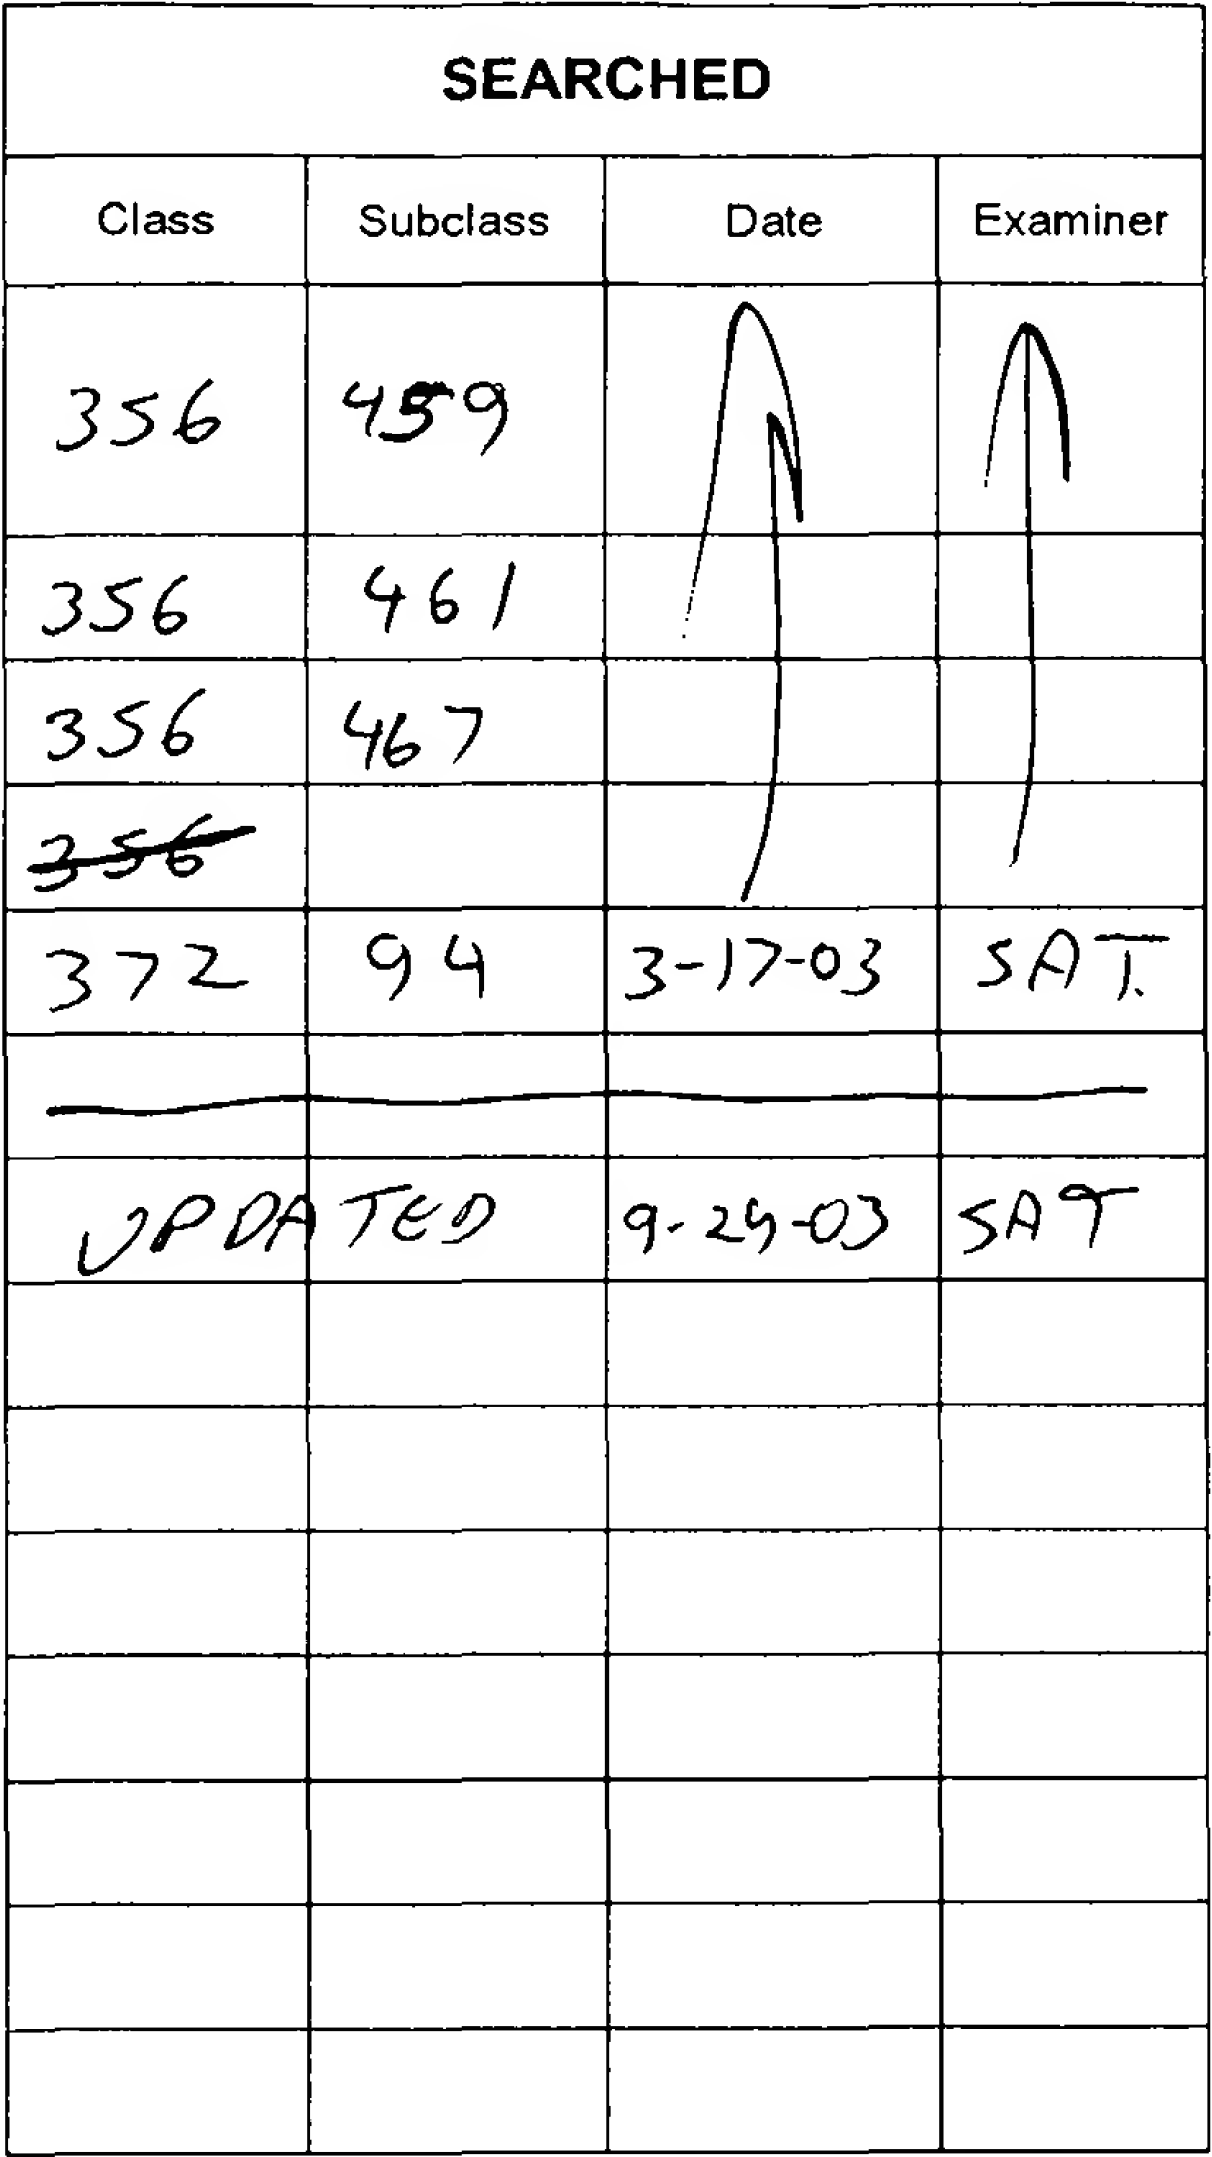 SEARCHED
Class Subclass Date Examiner
356 459
356 461
356 467
356
372 94 3-17-03 SAT.
UPDATED 9-29-03 SAT